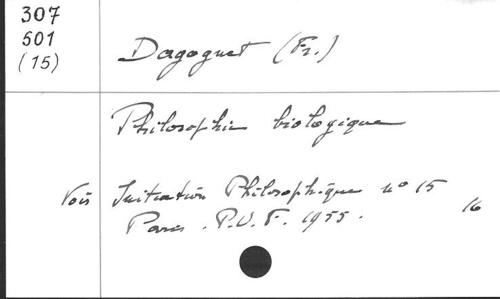 307
501
(15)
Dagognet (Fr.)
Philosophie biologique
Voir Initiation Philosophique no 15
Paris. P.U.F. 1955. 16